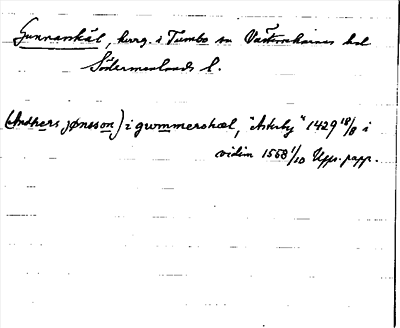 Gunnarskäl, herrg. i Tumbo sn Västerrekarnes hd
Södermanlands l.
(Anders jønsson) i gwnmerskæl, "Askeby" 1429 18/8 i
vidim 1558 1/10 Upps. papp.